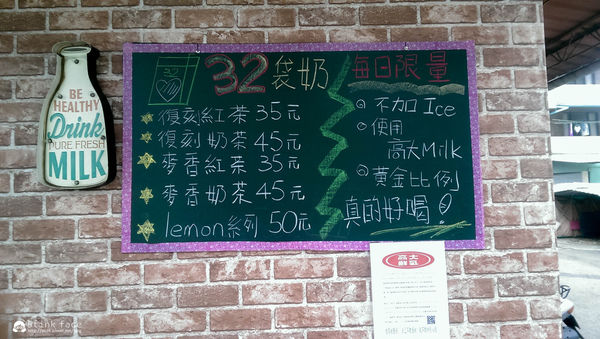 BE
HEALTHY
Drink
PURE FRESH
MILK
32袋奶
復刻紅茶35元
復刻奶茶45元
麥香紅茶35元
麥香奶茶45元
lemon系列50元
每日限量
不加Ice
使用
高大Milk
黃金比例
真的好喝!